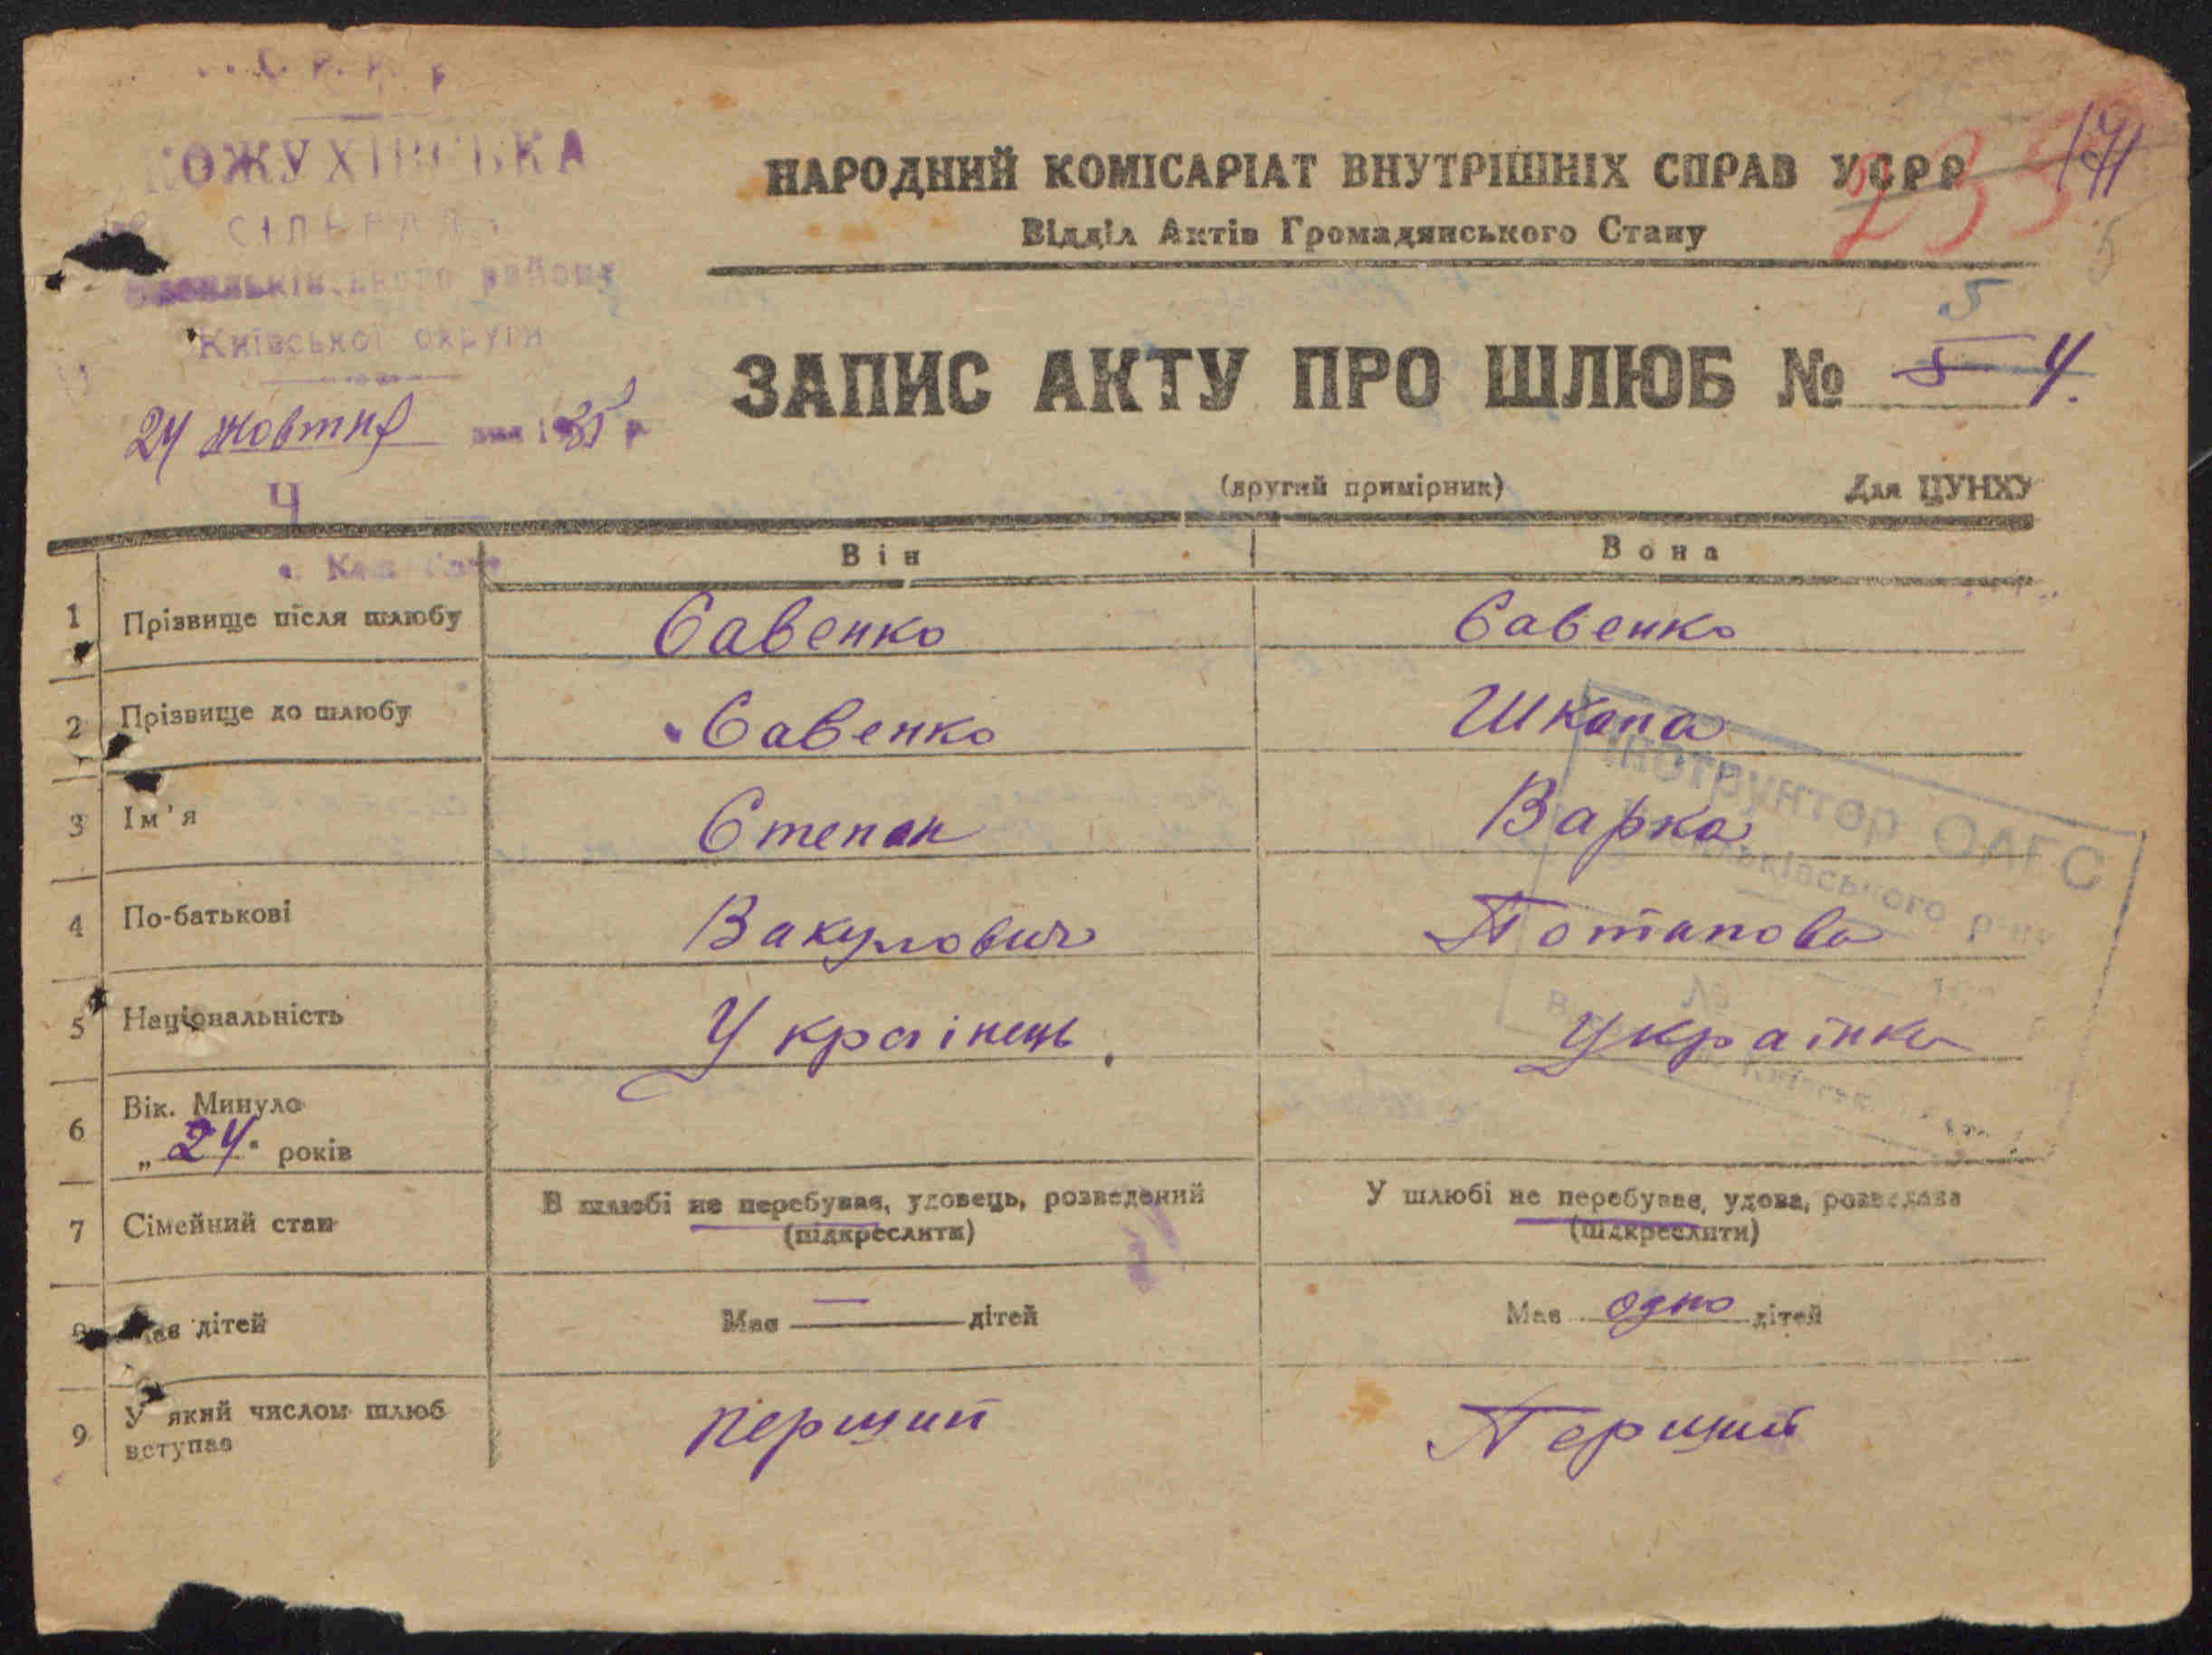 С. Р. Р.
КОЖУХІВСЬКА
СІЛЬРАДА
Васильківського району
Київської округи
24 жовтня дня 1935 р.
4
НАРОДНИЙ КОМІСАРІАТ ВНУТРІШНІХ СПРАВ УСРР
Відділ Актів Громадянського Стану
235
171
5
5
ЗАПИС АКТУ ПРО ШЛЮБ № 5 4.
(другий примірник) Для ЦУНХУ
Він Вона
1 Прізвище після шлюбу Савенко Савенко
2 Прізвище до шлюбу Савенко Шкапа
3 Ім'я Степан Варка
4 По-батькові Вакулович Потапова
5 Національність Українець Українка
6 Вік. Минуло
„24" років
7 Сімейний стан В шлюбі не перебував, удовець, розведений У шлюбі не перебуває, удова, розведена
(підкреслити) (підкреслити)
8 Має дітей Має — дітей Має одно дітей
9 У який числом шлюб
вступає перший Перший
Інструктор ОАГС
Васильківського р-ну
№